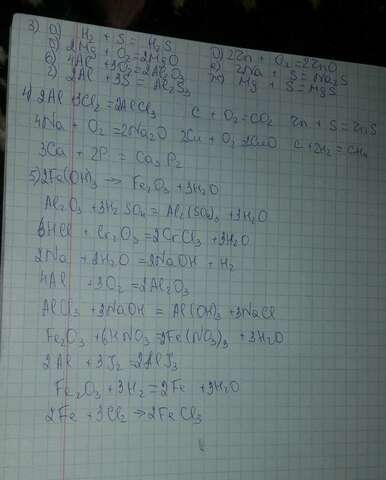 3) а) H₂ + S = H₂S
б) 2Mg + O₂ = 2MgO
в) 4Al + 3O₂ = 2Al₂O₃
г) 2Al + 3S = Al₂S₃
д) 2Zn + O₂ = 2ZnO
е) 2Na + S = Na₂S
ж) Mg + S = MgS
4) 2Al + 3Cl₂ = 2AlCl₃ C + O₂ = CO₂ Zn + S = ZnS
4Na + O₂ = 2Na₂O 2Cu + O₂ 2CuO C + 2H₂ = CH₄
3Ca + 2P = Ca₃P₂
5) 2Fe(OH)₃ → Fe₂O₃ + 3H₂O
Al₂O₃ + 3H₂SO₄ = Al₂(SO₄)₃ + 3H₂O
6HCl + Cr₂O₃ = 2CrCl₃ + 3H₂O
2Na + 2H₂O = 2NaOH + H₂
4Al + 3O₂ = 2Al₂O₃
AlCl₃ + 3NaOH = Al(OH)₃ + 3NaCl
Fe₂O₃ + 6HNO₃ = 2Fe(NO₃)₃ + 3H₂O
2Al + 3J₂ = 2AlJ₃
Fe₂O₃ + 3H₂ = 2Fe + 3H₂O
2Fe + 3Cl₂ → 2FeCl₃